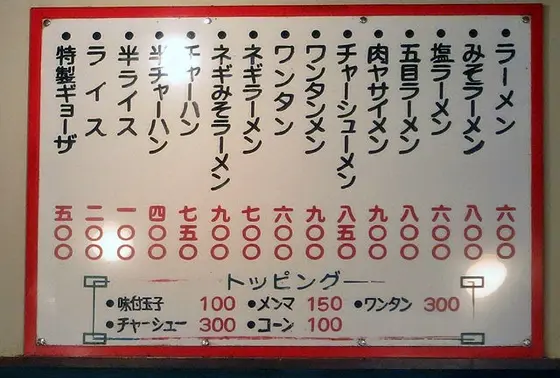 ●ラーメン 六〇〇
●みそラーメン 八〇〇
●塩ラーメン 六〇〇
●五目ラーメン 八〇〇
●肉ヤサイメン 九〇〇
●チャーシューメン 八五〇
●ワンタンメン 九〇〇
●ワンタン 六〇〇
●ネギラーメン 七〇〇
●ネギみそラーメン 九〇〇
●チャーハン 七五〇
●半チャーハン 四〇〇
●半ライス 一〇〇
●ライス 二〇〇
●特製ギョーザ 五〇〇
トッピング
●味付玉子 100 ●メンマ 150 ●ワンタン 300
●チャーシュー 300 ●コーン 100